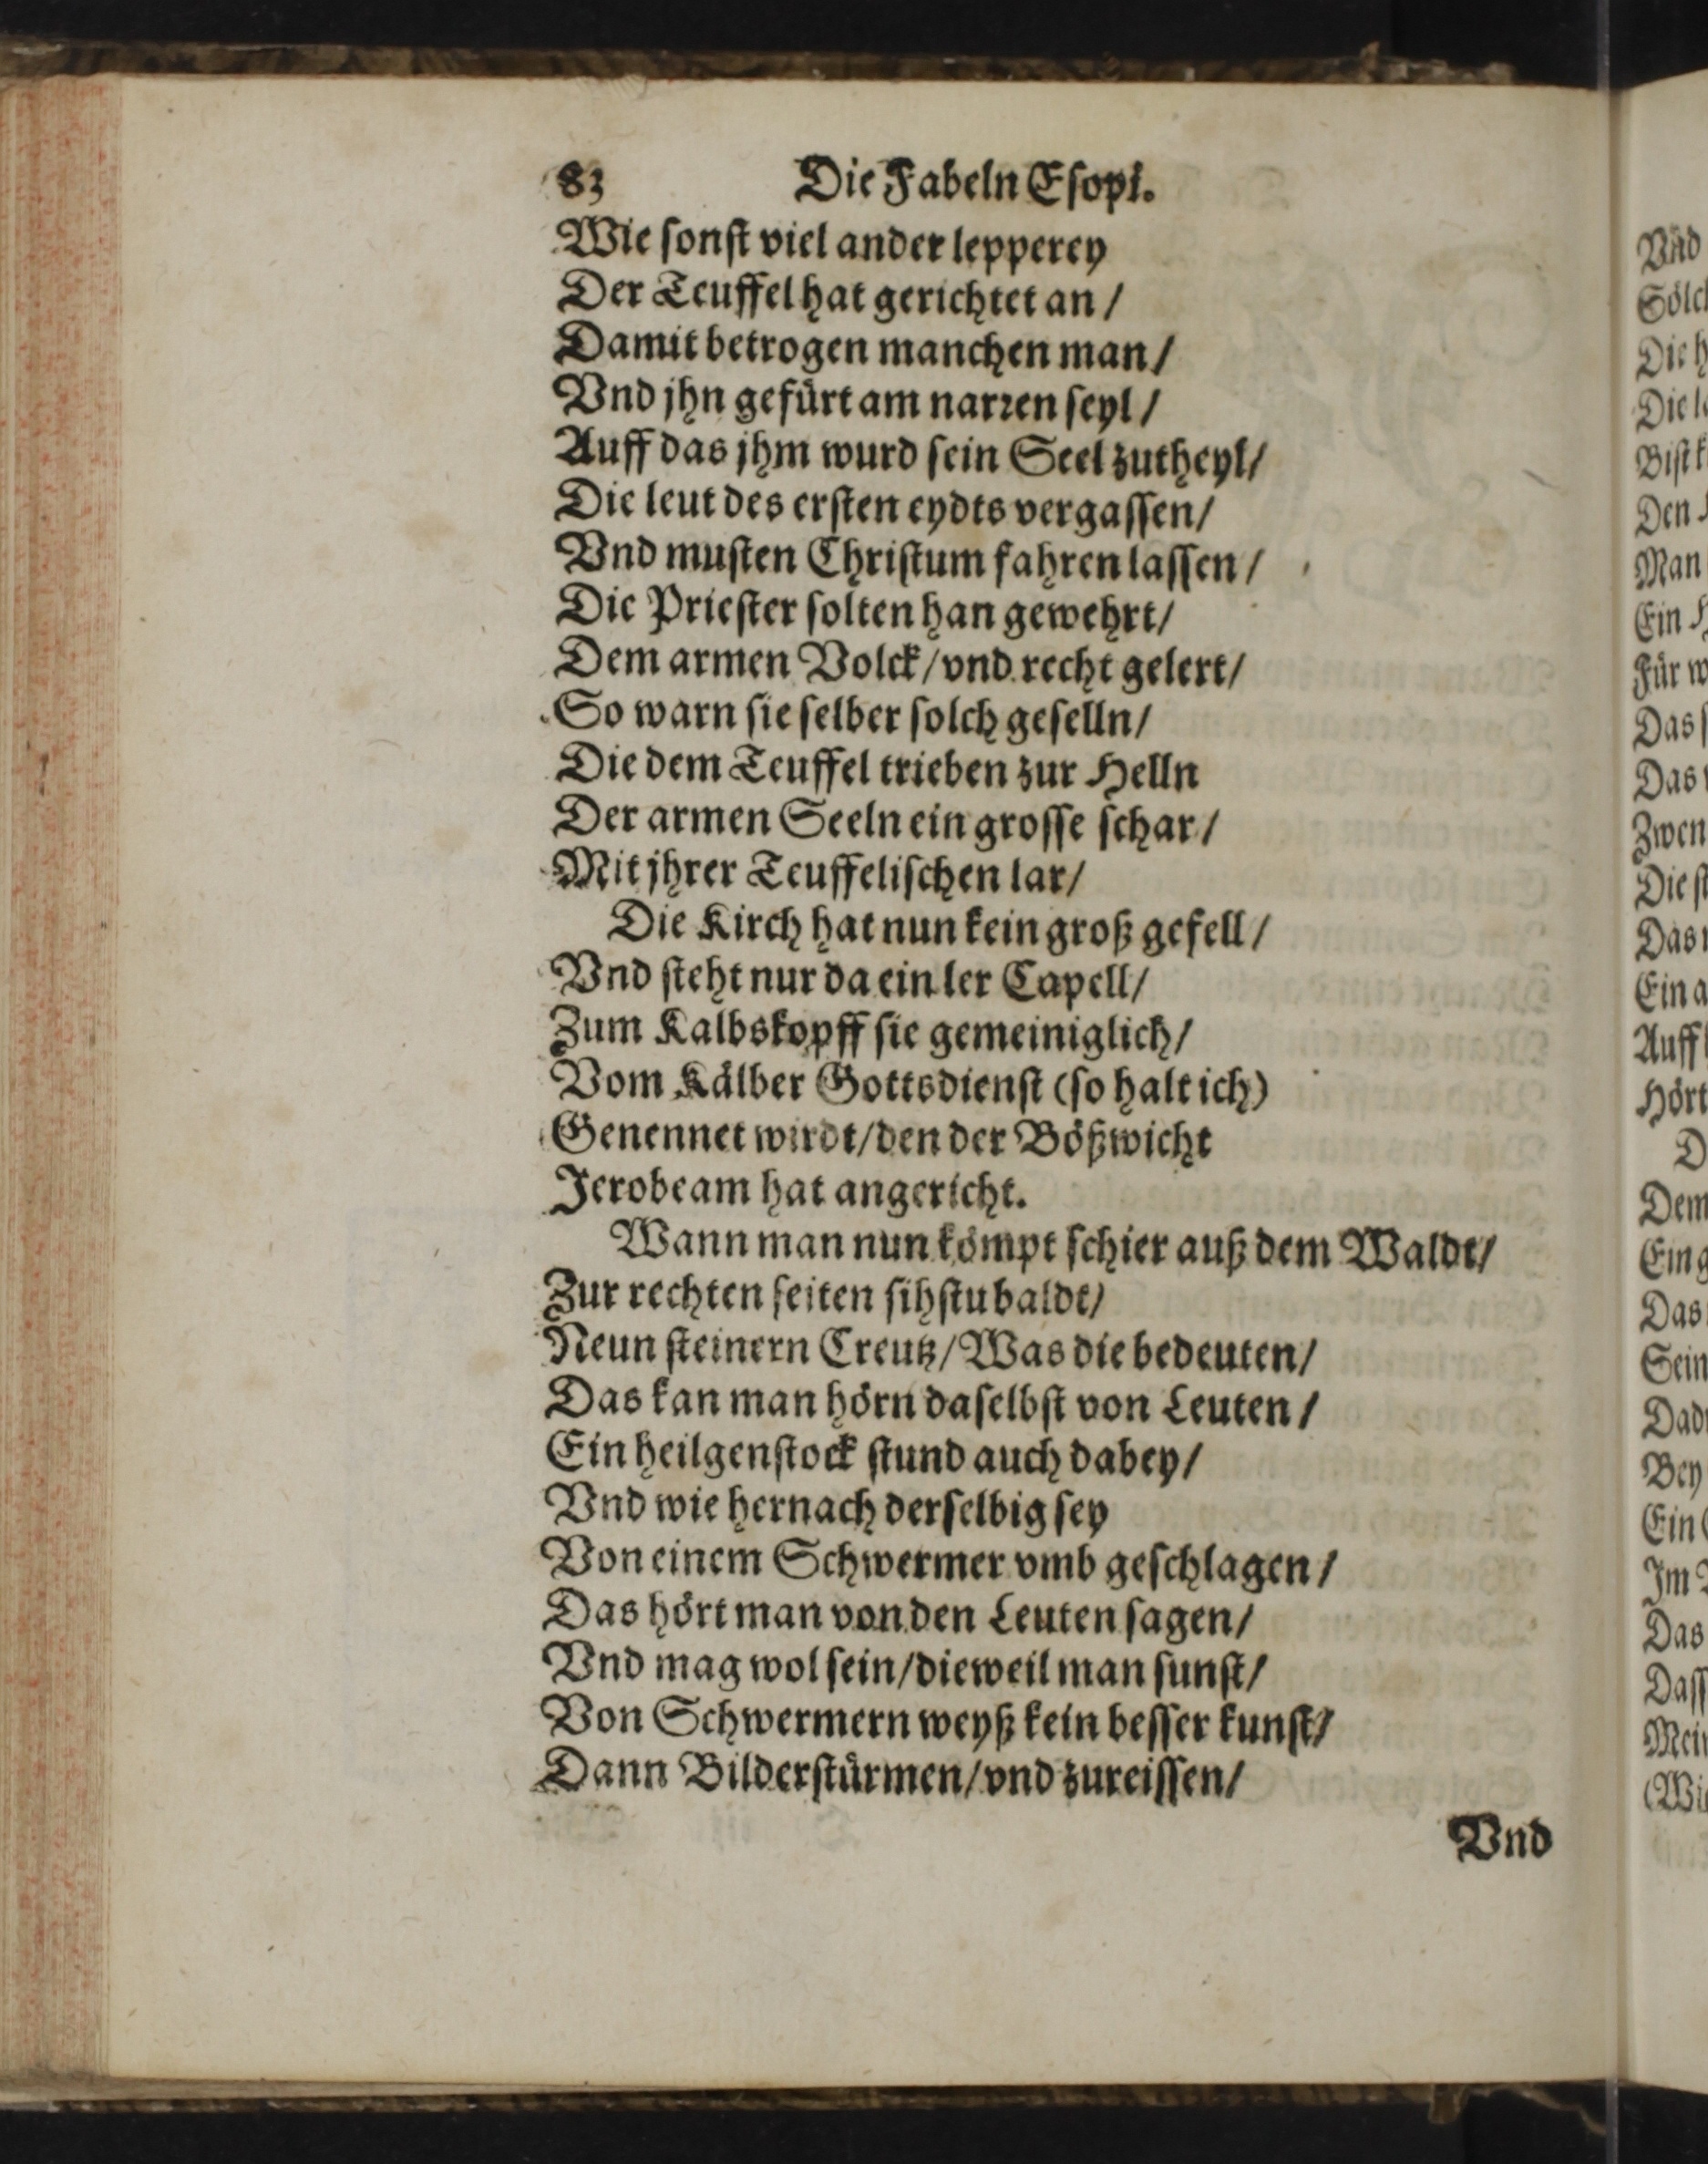 83 Die Fabeln Esopi.
Wie sonst viel ander lepperey
Der Teuffel hat gerichtet an /
Damit betrogen manchen man /
Vnd jhn gefürt am narren seyl /
Auff das jhm wurd sein Seel zutheyl /
Die leut des ersten eydts vergassen /
Vnd musten Christum fahren lassen /
Die Priester solten han gewehrt /
Dem armen Volck / vnd recht gelert /
So warn sie selber solch geselln /
Die dem Teuffel trieben zur Helln
Der armen Seeln ein grosse schar /
Mit jhrer Teuffelischen lar /
Die Kirch hat nun kein groß gefell /
Vnd steht nur da ein ler Capell /
Zum Kalbskopff sie gemeiniglich /
Vom Kälber Gottsdienst (so halt ich)
Genennet wirdt / den der Bößwicht
Jerobeam hat angericht.
Wann man nun kömpt schier auß dem Waldt /
Zur rechten seiten sihstu baldt /
Neun steinern Creutz / Was die bedeuten /
Das kan man hörn daselbst von Leuten /
Ein heilgenstock stund auch dabey /
Vnd wie hernach derselbig sey
Von einem Schwermer vmb geschlagen /
Das hört man von den Leuten sagen /
Vnd mag wol sein / dieweil man sunst /
Von Schwermern weyß kein besser kunst /
Dann Bilderstürmen / vnd zureissen /
Vnd
Vnd
Die
Den
Man
Ein
Für
Das
Das
Zwen
Die
Das
Ein
Auff
Hört
Dem
Ein
Das
Sein
Bey
Ein
Im
Das